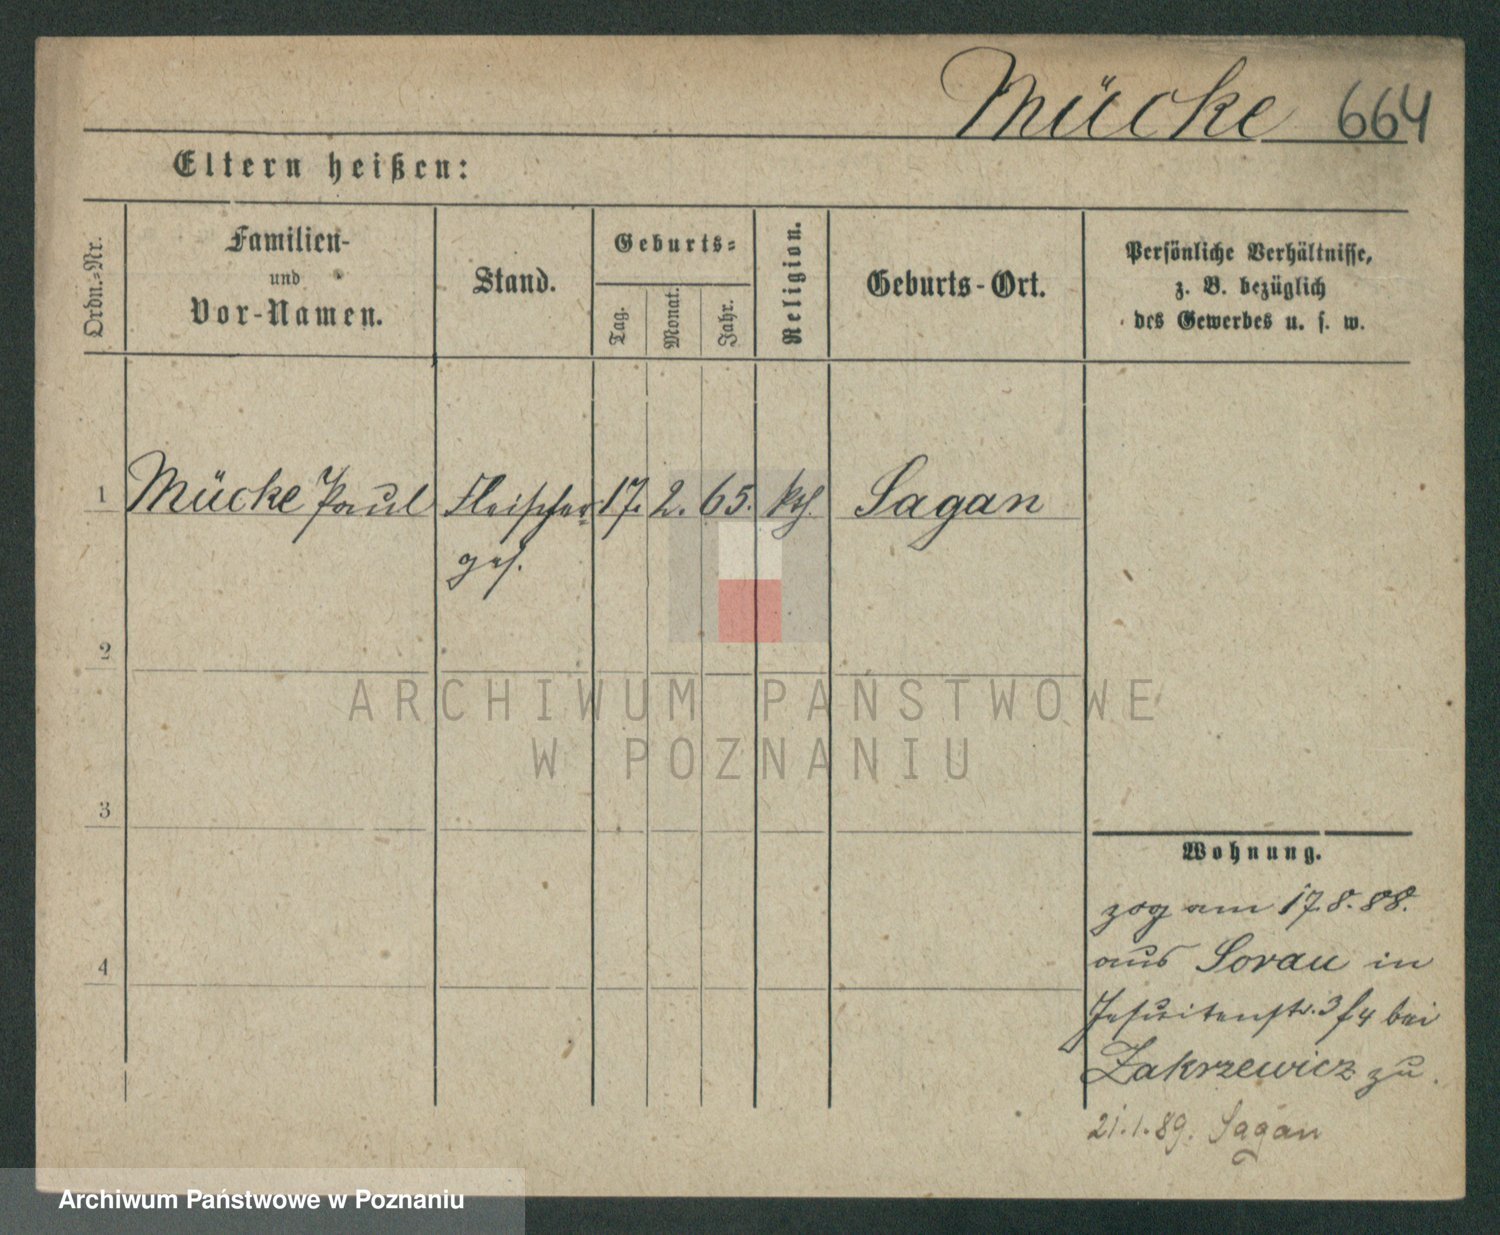 Mücke 664
Eltern heißen:
Ordn.-Nr.
Familien-
und
Vor-Namen.
Stand.
Geburts-
Tag.
Monat.
Jahr.
Religion.
Geburts-Ort.
Persönliche Verhältnisse,
z. B. bezüglich
des Gewerbes u. s. w.
1 Mücke Paul Fleischer- 17. 2. 65. kth. Sagan
ges.
2
ARCHIWUM PAŃSTWOWE
W POZNANIU
3
Wohnung.
zog am 17.8.88.
4
aus Sorau in
Jesuitenstr. 3/4 bei
Zakrzewicz zu.
21.1.89. Sagan
Archiwum Państwowe w Poznaniu